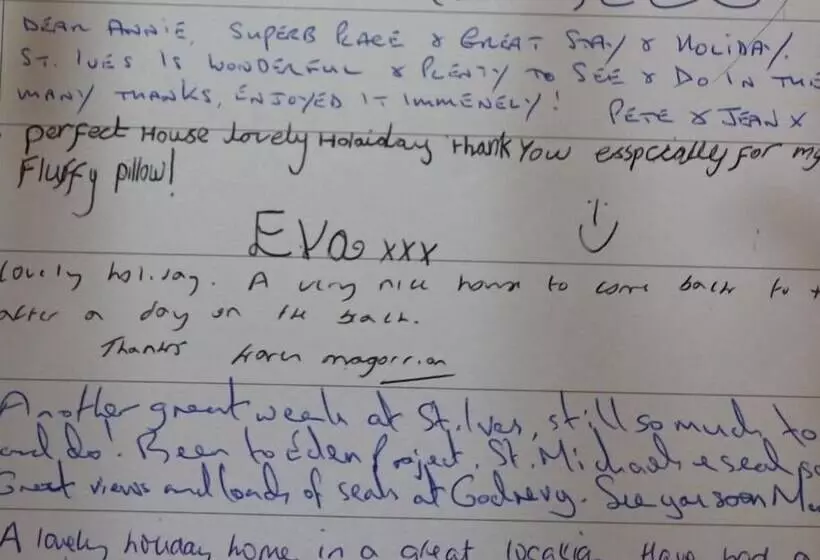 DEAR ANNIE, SUPERB PLACE & GREAT STAY & HOLIDAY.
ST. IVES IS WONDERFUL & PLENTY TO SEE & DO IN THE
MANY THANKS, ENJOYED IT IMMENELY! PETE & JEAN X
perfect House lovely Holaiday thank you esspcially for my
Fluffy pillow!
Eva xxx :)
lovely holiday. A very nice house to come back to
after a day on the beach.
Thanks Karen magorrian
Another great week at St. Ives, still so much to
and do! Been to Eden Project, St. Michaels & seal
Great views and loads of seals at Godrevy. See you soon
A lovely holiday home in a great location. Have had a